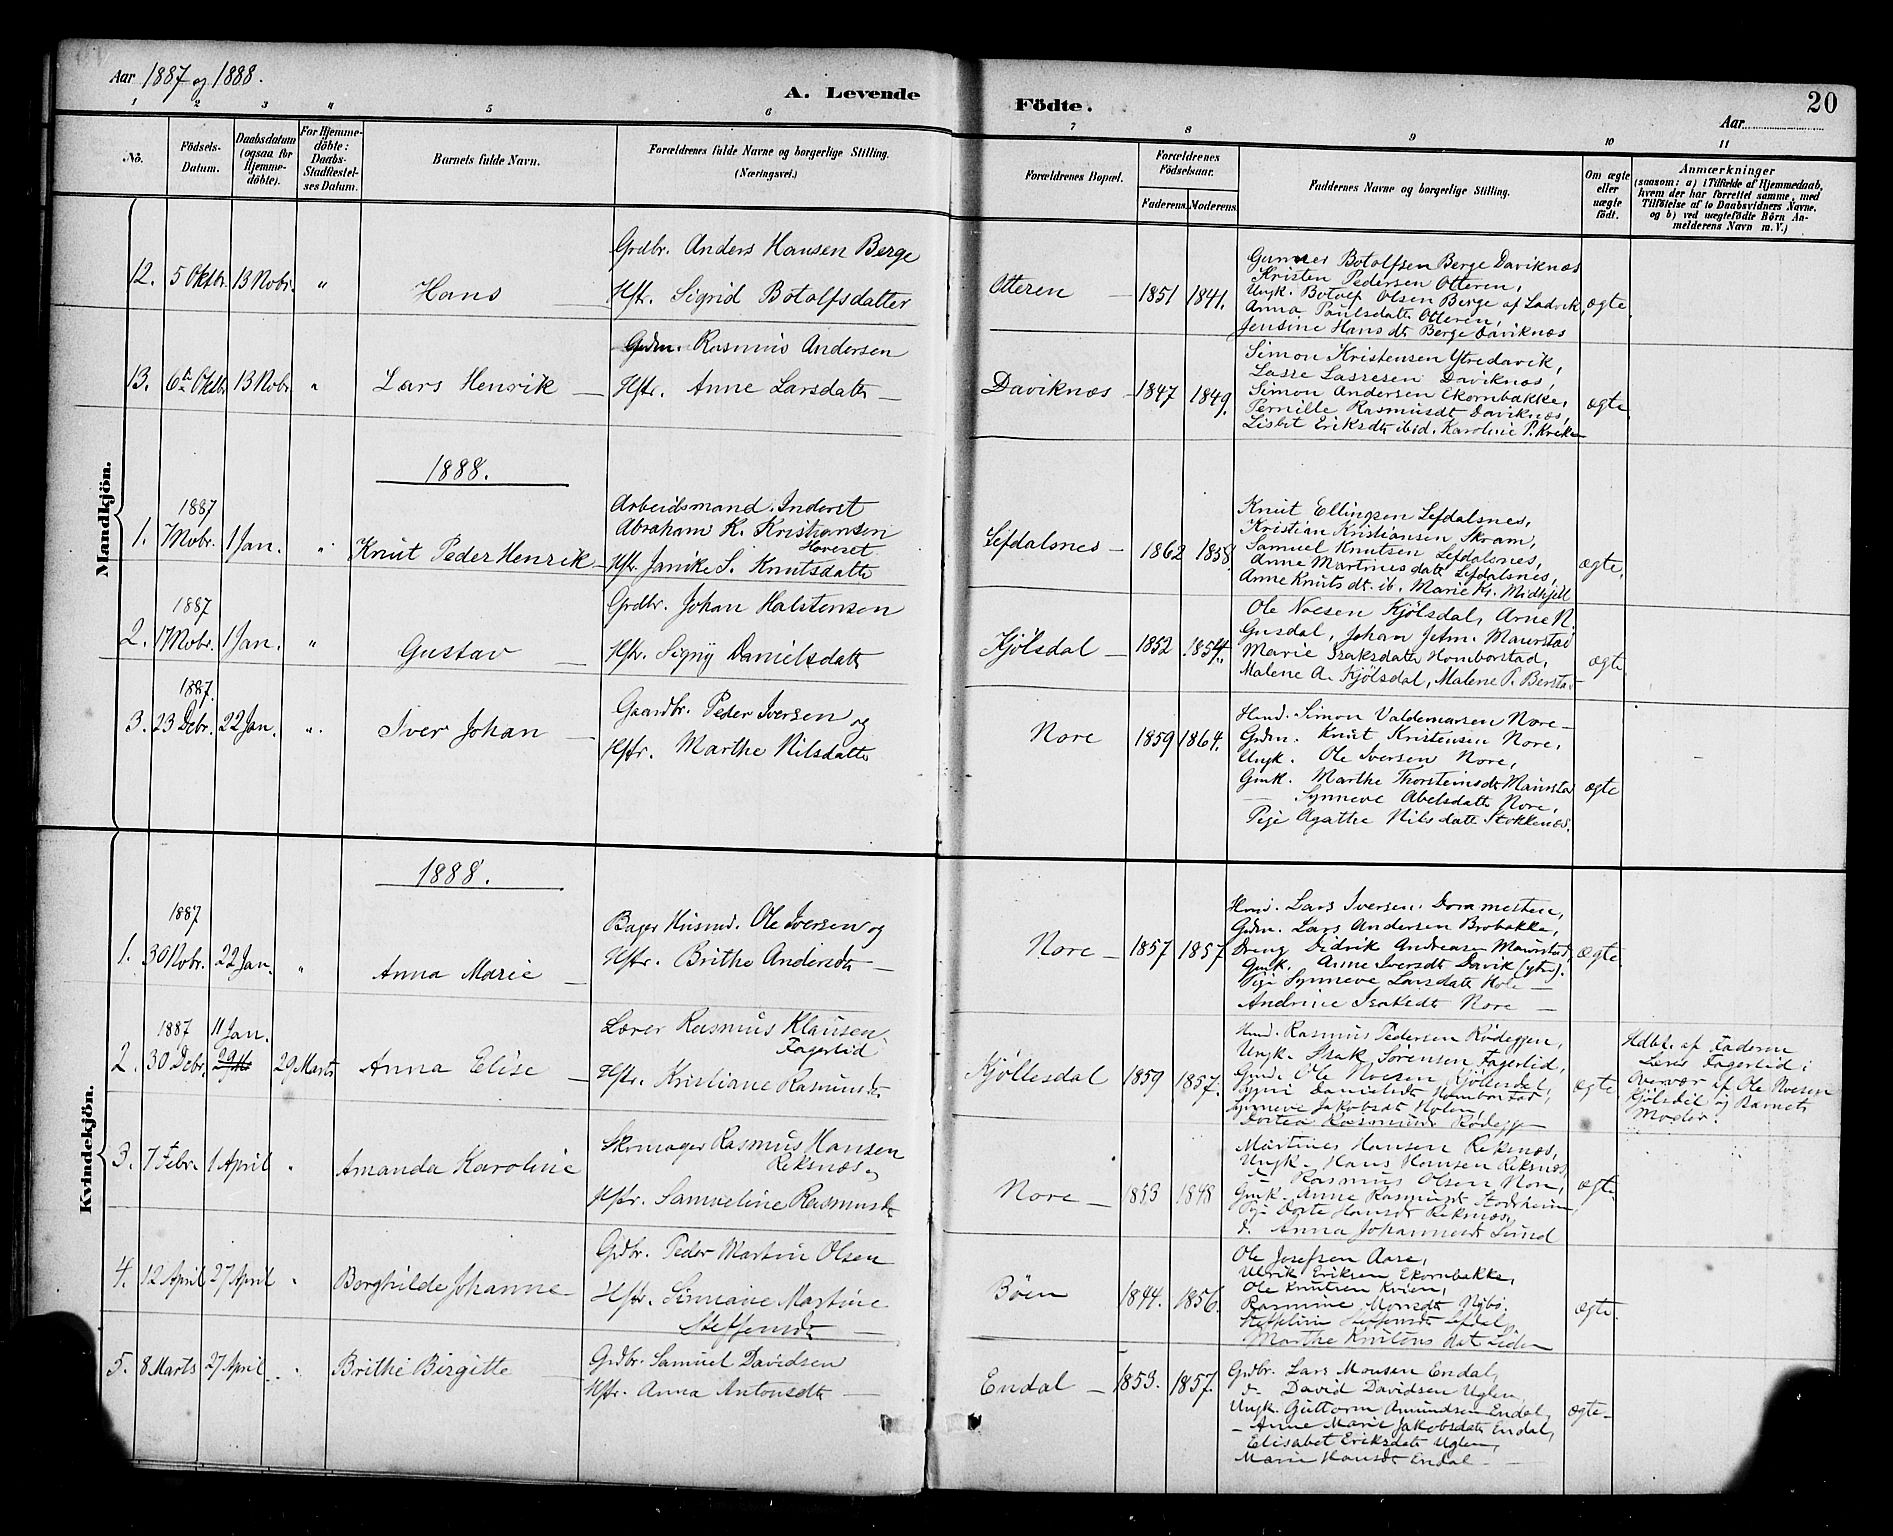 Aar 1887 og 1888.
A. Levende Födte.
20
Aar
1 2 3 " 5 6 7 8 9 10 11
No.
Födsels-Datum.
Daabsdatum (ogsaa for Hjemme-döbte).
For Hjemme-döbte: Daabs-Stadfæstel-ses Datum.
Barnets fulde Navn.
Forældrenes fulde Navne og borgerlige Stilling. (Næringsvei.)
Forældrenes Bopæl.
Forældrenes Födselsaar.
Faderens. Moderens.
Faddernes Navne og borgerlige Stilling.
Om ægte eller uægte födt.
Anmærkninger
(saasom: a) i Tilfælde af Hjemmedaab,
hvem der har forrettet samme, med
Tilföielse af to Daabsvidners Navne,
og b) ved uægtefödte Börn An-
melderens Navn m. V.)
Mandkjön.
12. 5 Oktbr. 13 Nobr. " Hans
Grdbr. Anders Hansen Berge
Hstr. Sigrid Botolfsdatter
Otteren 1851 1841.
Gunner Botolfsen Berge Daviknæs
Kristen Pedersen Otteren,
Ungk. Botolf Olsen Berge af Ladvik,
Anna Paulsdatt Otteren,
Jensine Hansdt Berge Daviknæs
ægte.
13. 6te Oktbr 13 Nobr " Lars Henrik
Grdm. Rasmus Andersen
Hstr. Anne Larsdatt
Daviknæs 1847 1849.
Simon Kristensen Ytredavik,
Lasse Lassesen Daviknæs,
Simon Andersen Ekornbakke,
Pernille Rasmusdt Daviknæs,
Lisbet Eriksdt ibid. Karoline P. Kreken
ægte.
1888.
1. 1887 7 Nobr. 1 Jan. " Knut Peder Henrik
Arbeidsmand, Inderst
Abraham K. Kristiansen
Haveset
Hstr Janike S. Knutsdatt
Lefdalsnes 1862 1858.
Knut Ellingsen Lefdalsnes,
Kristian Kristiansen Skram,
Samuel Knutsen Lefdalsnes,
Anne Martinesdatt Lefdalsnes,
Anne Knutsdt. ib. Marie K. Midhjell
ægte.
2. 1887 17 Nobr. 1 Jan. " Gustav
Grdbr. Johan Halstensen
Hstr. Signy Danielsdatt
Kjölsdal 1852 1854.
Ole Noesen Kjölsdal, Arne N.
Gusdal, Johan Maurstad
Marie Isaksdatt Homborstad,
Malene A. Kjölsdal, Malene P. Berstad
ægte.
3. 1887. 23 Debr. 22 Jan. " Iver Johan
Gaardbr. Peder Iversen og
Hstr. Marthe Nilsdatt
Nore 1859 1864.
Hmd. Simon Valdemarsen Nore
Grdm. Knut Kristensen Nore,
Ungk. Ole Iversen Nore,
Gmk. Marthe Thorsteinsdt Maurstad
Synneve Abelsdatt Nore,
Pige Agathe Nilsdatt Stokkenæs.
ægte
Kvindekjön.
1888.
1. 1887 30 Nobr. 22 Jan. " Anna Marie
Bager Husmd. Ole Iversen og
Hstr. Brithe Andersdt
Nore 1857 1857
Hmd. Lars Iversen
Grdm. Lars Andersen Brobakke,
Dreng Didrik Andreasen Maurstad,
Gmk. Anne Iversdt Davik (ytre).
Pige Synneve Larsdatt Hole
Andrine Isaksdt Nore
ægte.
2. 1887 30 Debr. 11 Jan. 29 Marts Anna Elise
Lærer Rasmus Klausen
Fagerlid
Hstr. Kristiane Rasmusdt
Kjöllesdal 1859 1857.
Hmd. Rasmus Pedersen Rödeggen,
Ungk. Isak Sörensen Fagerlid,
Gmd. Ole Noesen Kjöllesdal,
Signi Danielsdt Homborstad,
Synneve Jakobsdt Holen,
Dortea Rasmusdt Rödeggen
ægte
Hdbt. af Faderen
Lærer Fagerlid i
Overvær af Ole Noesen
Kjölsdal og Barnets
Moder.
3. 7 Febr. 1 April " Amanda Karoline
Skomager Rasmus Hansen
Reksnæs
Hstr. Samueline Rasmusdt
Nore 1853 1848
Martines Hansen Reksnæs,
Ungk. Hans Hansen Reksnæs,
Rasmus Olsen Nore,
Gmk. Anne Rasmusdt
Pige Dorte Hansdt Reksnæs,
d. Anna Johannesdt
ægte.
4. 12 April 27 April " Borghilde Johanne
Grdbr. Peder Martin Olsen
Hstr. Martine
Steffensdt
Böen 1844. 1856.
Ole Josefsen Aare,
Ulrik Eriksen Ekornbakke,
Ole Knutsen Kvien,
Rasmine Monsdt Nybö,
Steffensdt Lefdal,
Marthe Knutsens dat Liden
ægte.
5. 8 Marts 27 April " Brithe Birgitte
Grdbr. Samuel Davidsen
Hstr. Anna Antonsdt
Endal 1853. 1857.
Grdbr. Lars Monsen Endal,
d. David Davidsen Uglen,
Ungk. Guttorm Amundsen Endal,
Anne Marie Jakobsdatt Endal,
Elisabet Eriksdatt Uglen,
Marie Hansdt Endal
ægte